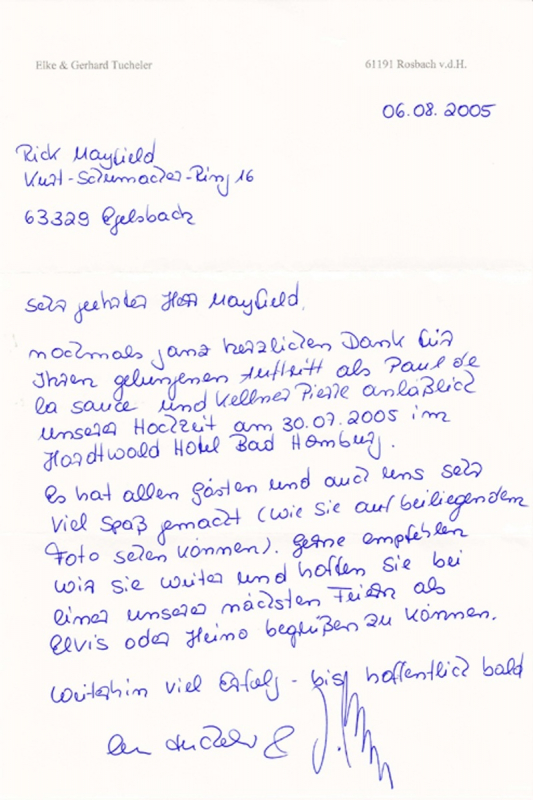 Elke & Gerhard Tucheler
61191 Rosbach v.d.H.
06.08.2005
Rick Mayfield
Kurt-Schumacher-Ring 16
63329 Egelsbach
Sehr geehrter Herr Mayfield,
nochmals ganz herzlichen Dank für
Ihren gelungenen Auftritt als Paul de
la sauce und Kellner Pierre anläßlich
unserer Hochzeit am 30.07.2005 im
Hardtwald Hotel Bad Homburg.
Es hat allen Gästen und auch uns sehr
viel Spaß gemacht (wie sie auf beiliegendem
Foto sehen können). Gerne empfehlen
wir sie weiter und hoffen sie bei
einer unserer nächsten Feiern als
Elvis oder Heino begrüßen zu können.
Weiterhin viel Erfolg - bis hoffentlich bald
&